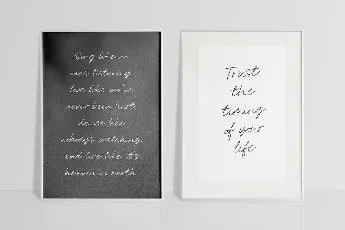 Sing like no
ones listening
love like you've
never been hurt
dance like
nobody's watching
and live like it's
heaven on earth
Trust
the
timing
of your
life